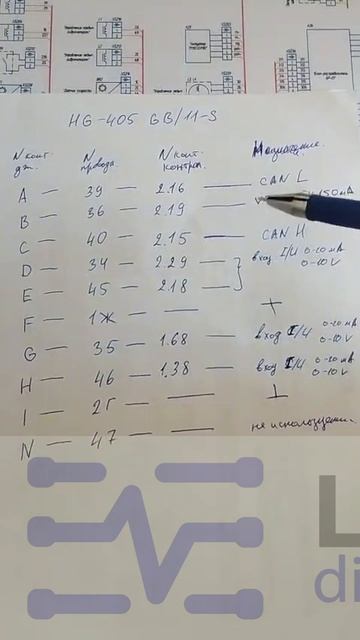 HG-405 GB/11-S
N конт. N N конт. Назначение.
дж. провода. контрол.
A — 39 — 2.16 — CAN L
B — 36 — 2.19 — 150мА
C — 40 — 2.15 — CAN H
D — 34 — 2.29 вход I/U 0-20мА
0-10V
E — 45 — 2.18
F — 1Ж — — +
G — 35 — 1.68 вход I/U 0-20мА
0-10V
H — 46 — 1.38 вход I/U 0-20мА
0-10V
I — 2Г — — ⊥
N — 47 — — не используется.
L
di